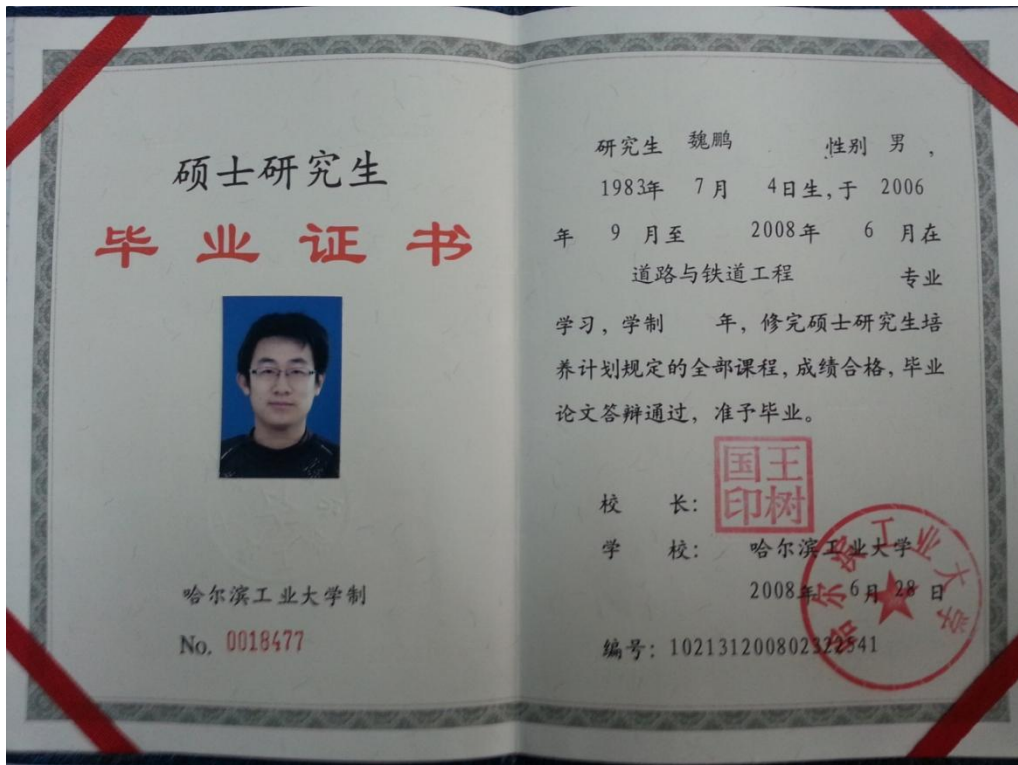 硕士研究生
毕业证书
哈尔滨工业大学制
No. 0018477
研究生 魏鹏 性别 男，
1983年 7月 4日生，于 2006
年 9 月至 2008年 6 月在
道路与铁道工程 专业
学习，学制 年，修完硕士研究生培
养计划规定的全部课程，成绩合格，毕业
论文答辩通过，准予毕业。
王树国印
校 长：
学 校： 哈尔滨工业大学
2008年 6月 28日
编号：102131200802322541
哈尔滨工业大学